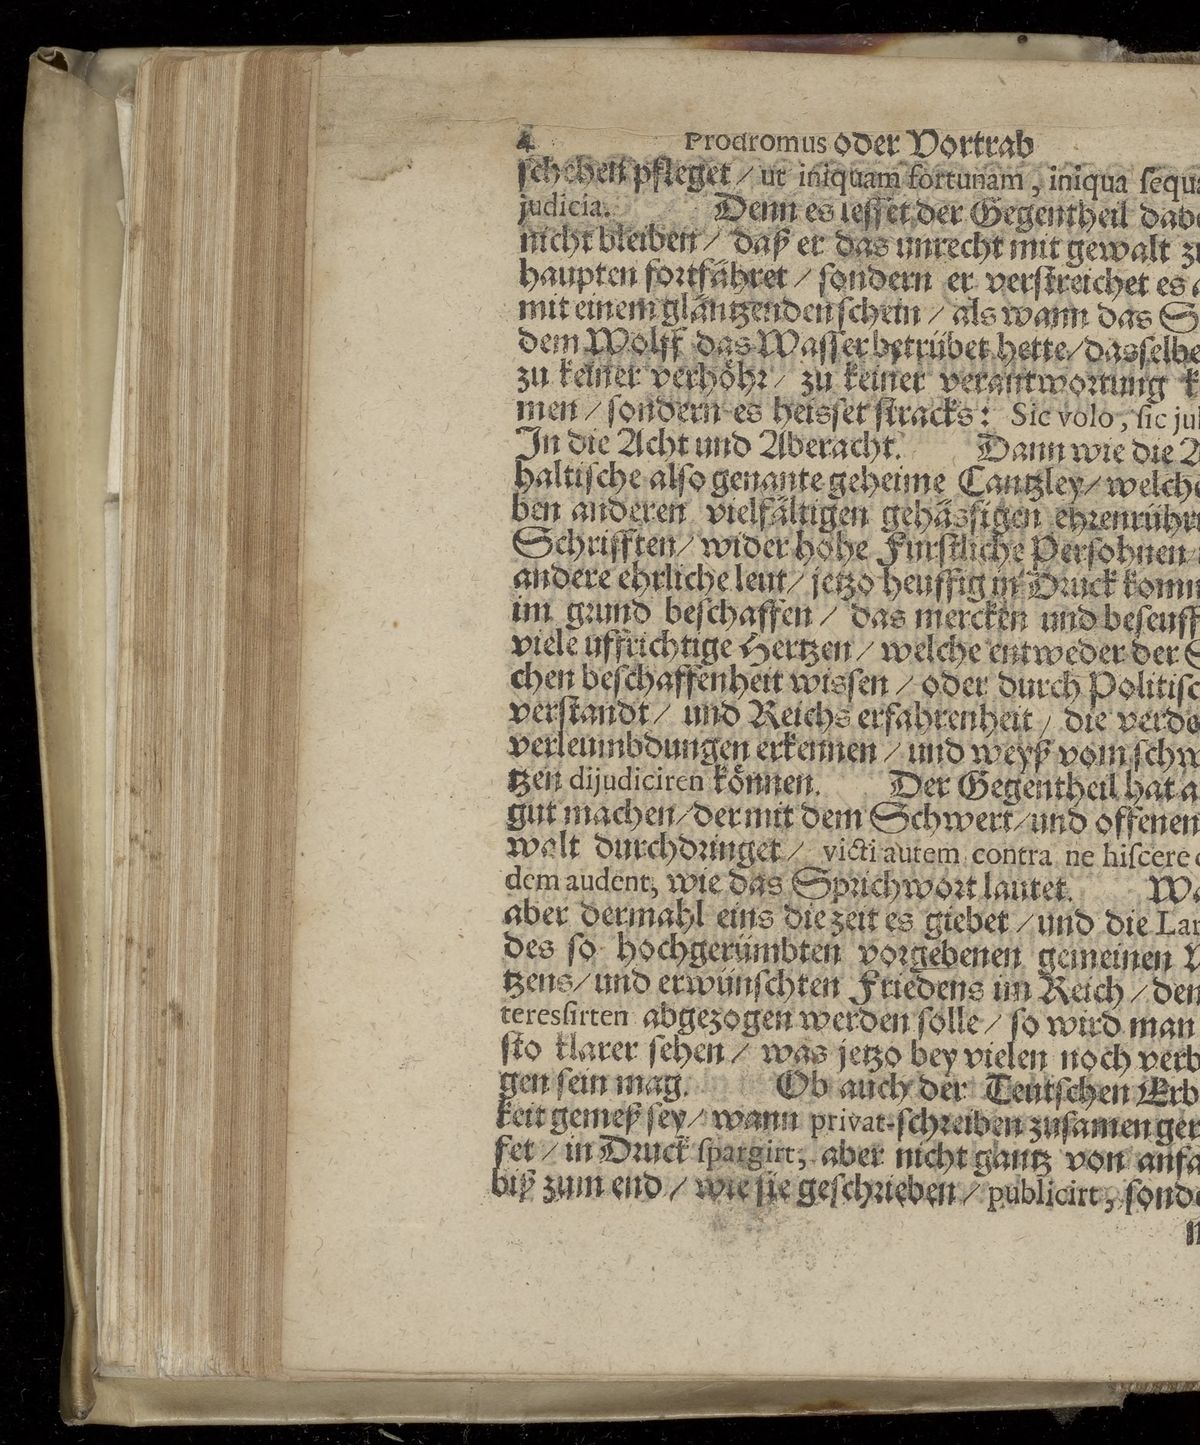 4 Prodromus oder Vortrab
schehen pfleget / ut iniquam fortunam, iniqua sequa
judicia. Denn es lesset der Gegentheil dabe
nicht bleiben / daß er das unrecht mit gewalt zu
haupten fortfähret / sondern er verstreichet es a
mit einem gläntzenden schein / als wann das S
dem Wolff das Wasser betrübet hette / dasselbe
zu keiner verhöhr / zu keiner verantwortung k
men / sondern es heisset stracks: Sic volo, sic jub
In die Acht und Aberacht. Dann wie die A
haltische also genante geheime Cantzley / welche
ben anderen vielfältigen gehässigen ehrenrühri
Schrifften / wider hohe Fürstliche Persohnen /
andere ehrliche leut / jetzo heuffig in Druck komm
im grund beschaffen / das mercken und beseuff
viele uffrichtige Hertzen / welche entweder der S
chen beschaffenheit wissen / oder durch Politisc
verstandt / und Reichs erfahrenheit / die verde
verleumbdungen erkennen / und weyß vom schw
tzen dijudiciren können. Der Gegentheil hat a
gut machen / der mit dem Schwert / und offenen
walt durchdringet / victi autem contra ne hiscere q
dem audent, wie das Sprichwort lautet. Wa
aber dermahl eins die zeit es giebet / und die Lar
des so hochgerümbten vorgebenen gemeinen N
tzens / und erwünschten Friedens im Reich / den
teressirten abgezogen werden solle / so wird man
sto klarer sehen / was jetzo bey vielen noch verb
gen sein mag. Ob auch der Teutschen Erb
keit gemeß sey / wann privat-schreiben zusamen ger
fet / in Druck spargirt, aber nicht gantz von anfa
biß zum end / wie sie geschrieben / publicirt, sonde